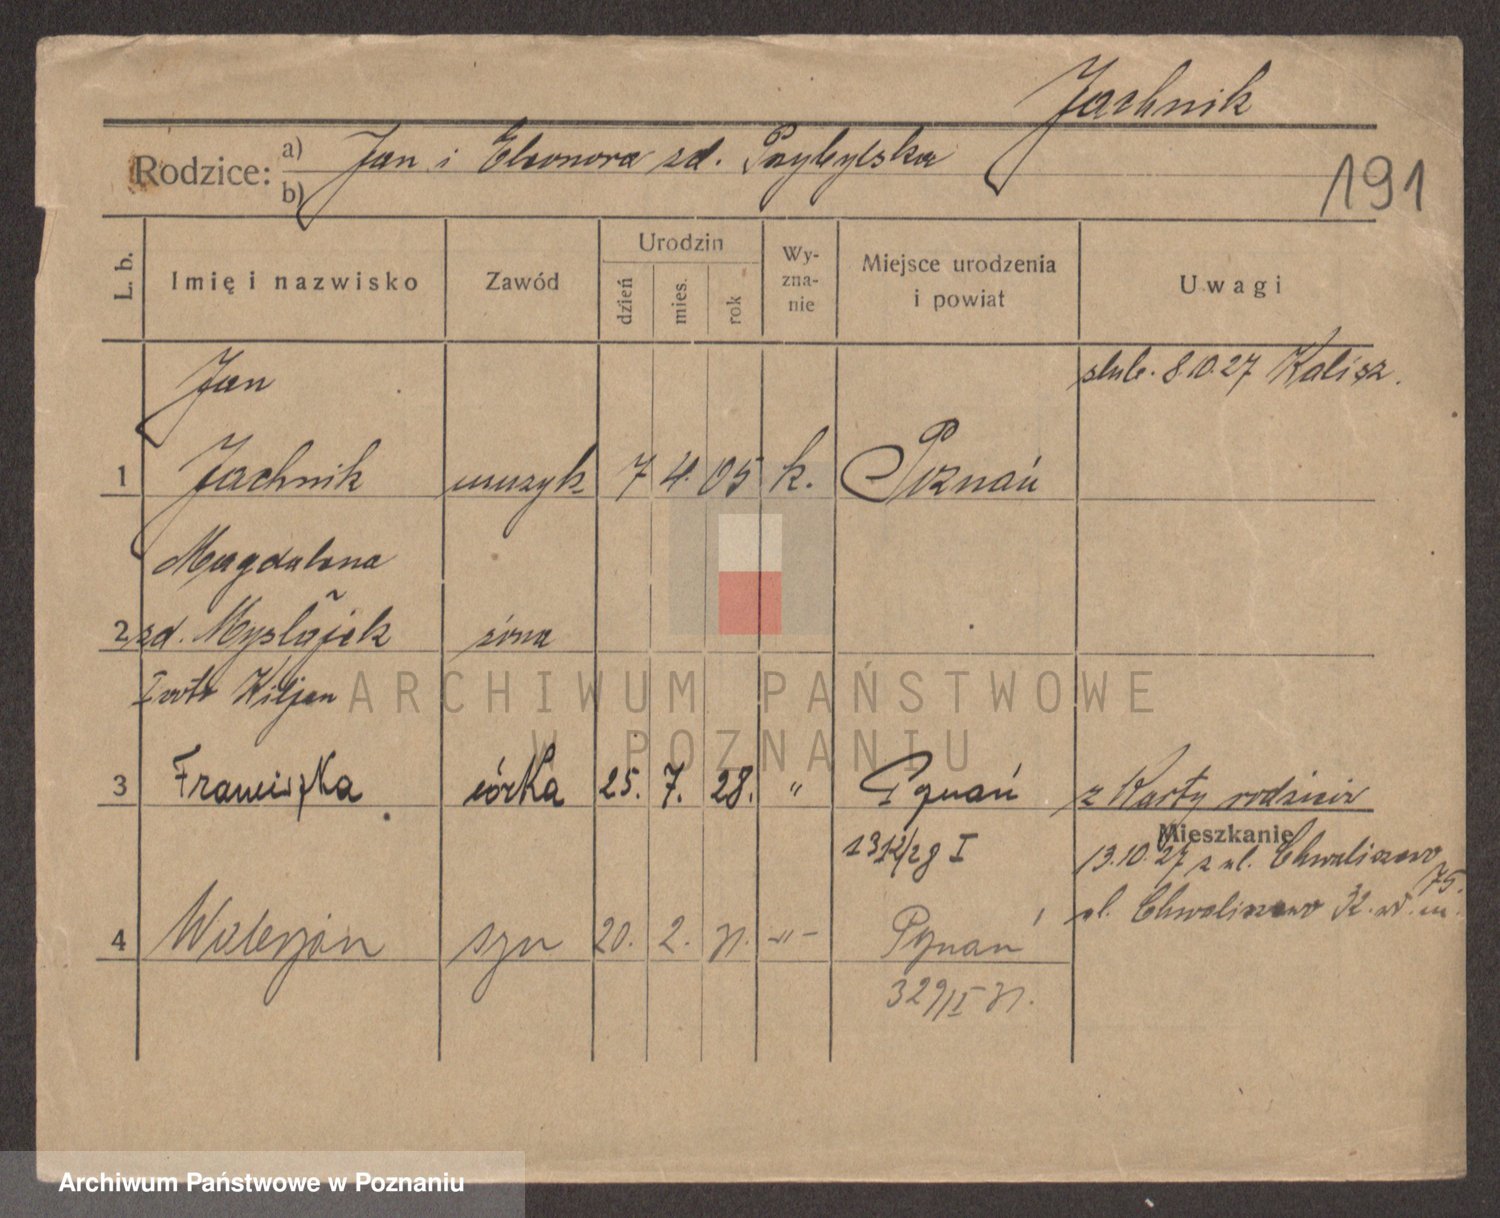 Jachnik
Rodzice: a) Jan i Eleonora zd. Przybylska
b)
191
L. b. Imię i nazwisko Zawód Urodzin dzień mies. rok Wy-zna-nie Miejsce urodzenia i powiat Uwagi
Jan ślub. 8.10.27 Kalisz.
1 Jachnik muzyk 7 4. 05 k. Poznań
Magdalena
2 zd. Myslajek żona
Kiljan
3 Franciszka córka 25. 7. 28. " Poznań z Karty rodzicir
Mieszkanie
13.10.27 z ul. Chwaliszewo 75.
ul. Chwaliszewo
4 Walerjan syn 20. 2. 31. -"- Poznań
ARCHIWUM PAŃSTWOWE
W POZNANIU
Archiwum Państwowe w Poznaniu